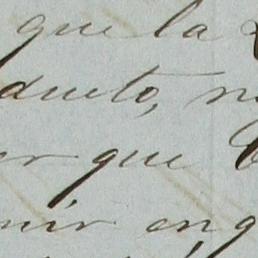 que la
ducto, n
er que
nir en q